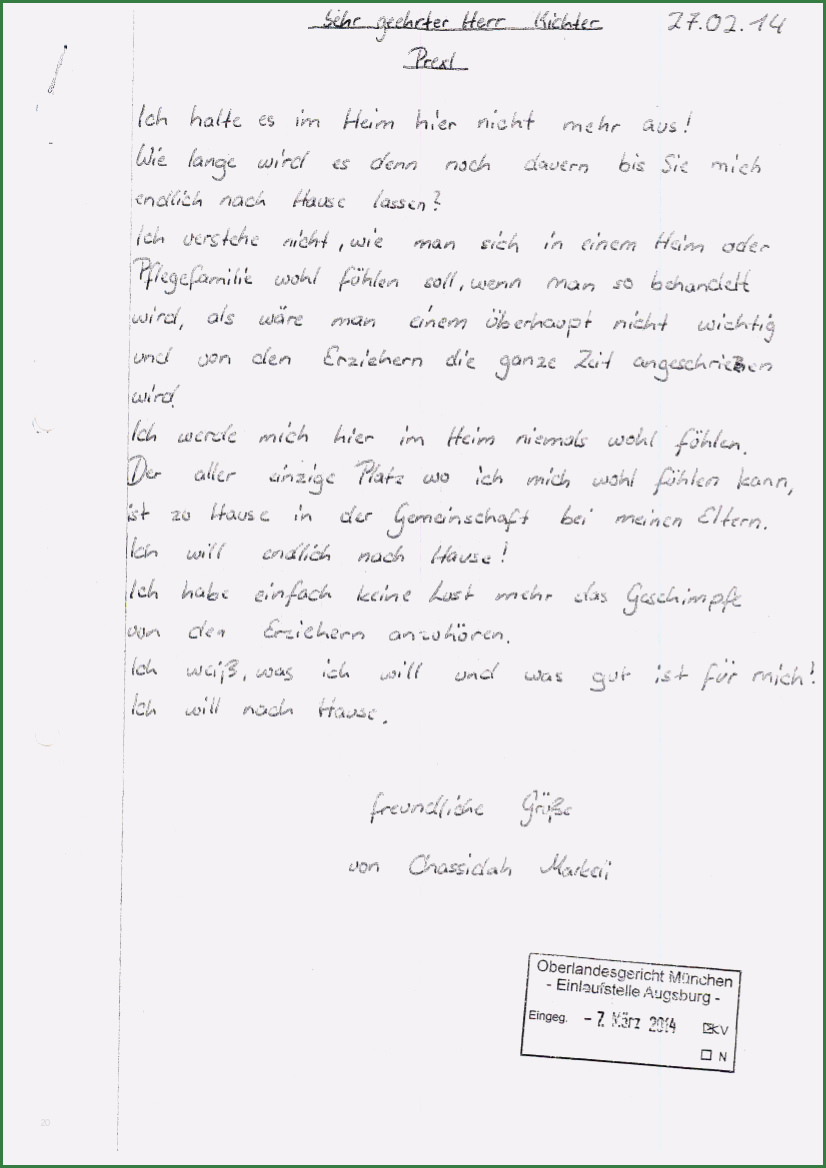 Sehr geehrter Herr Richter 27.02.14
Prexl
Ich halte es im Heim hier nicht mehr aus!
Wie lange wird es denn noch dauern bis Sie mich
endlich nach Hause lassen?
Ich verstehe nicht, wie man sich in einem Heim oder
Pflegefamilie wohl fühlen soll, wenn man so behandelt
wird, als wäre man einem überhaupt nicht wichtig
und von den Erziehern die ganze Zeit angeschrieen
wird.
Ich werde mich hier im Heim niemals wohl fühlen.
Der aller einzige Platz wo ich mich wohl fühlen kann,
ist zu Hause in der Gemeinschaft bei meinen Eltern.
Ich will endlich nach Hause!
Ich habe einfach keine Lust mehr das Geschimpfe
von den Erziehern anzuhören.
Ich weiß, was ich will und was gut ist für mich!
Ich will nach Hause.
freundliche Grüße
von Chassidah
Oberlandesgericht München
- Einlaufstelle Augsburg -
Eingeg. - 7. März 2014 KV
N
20